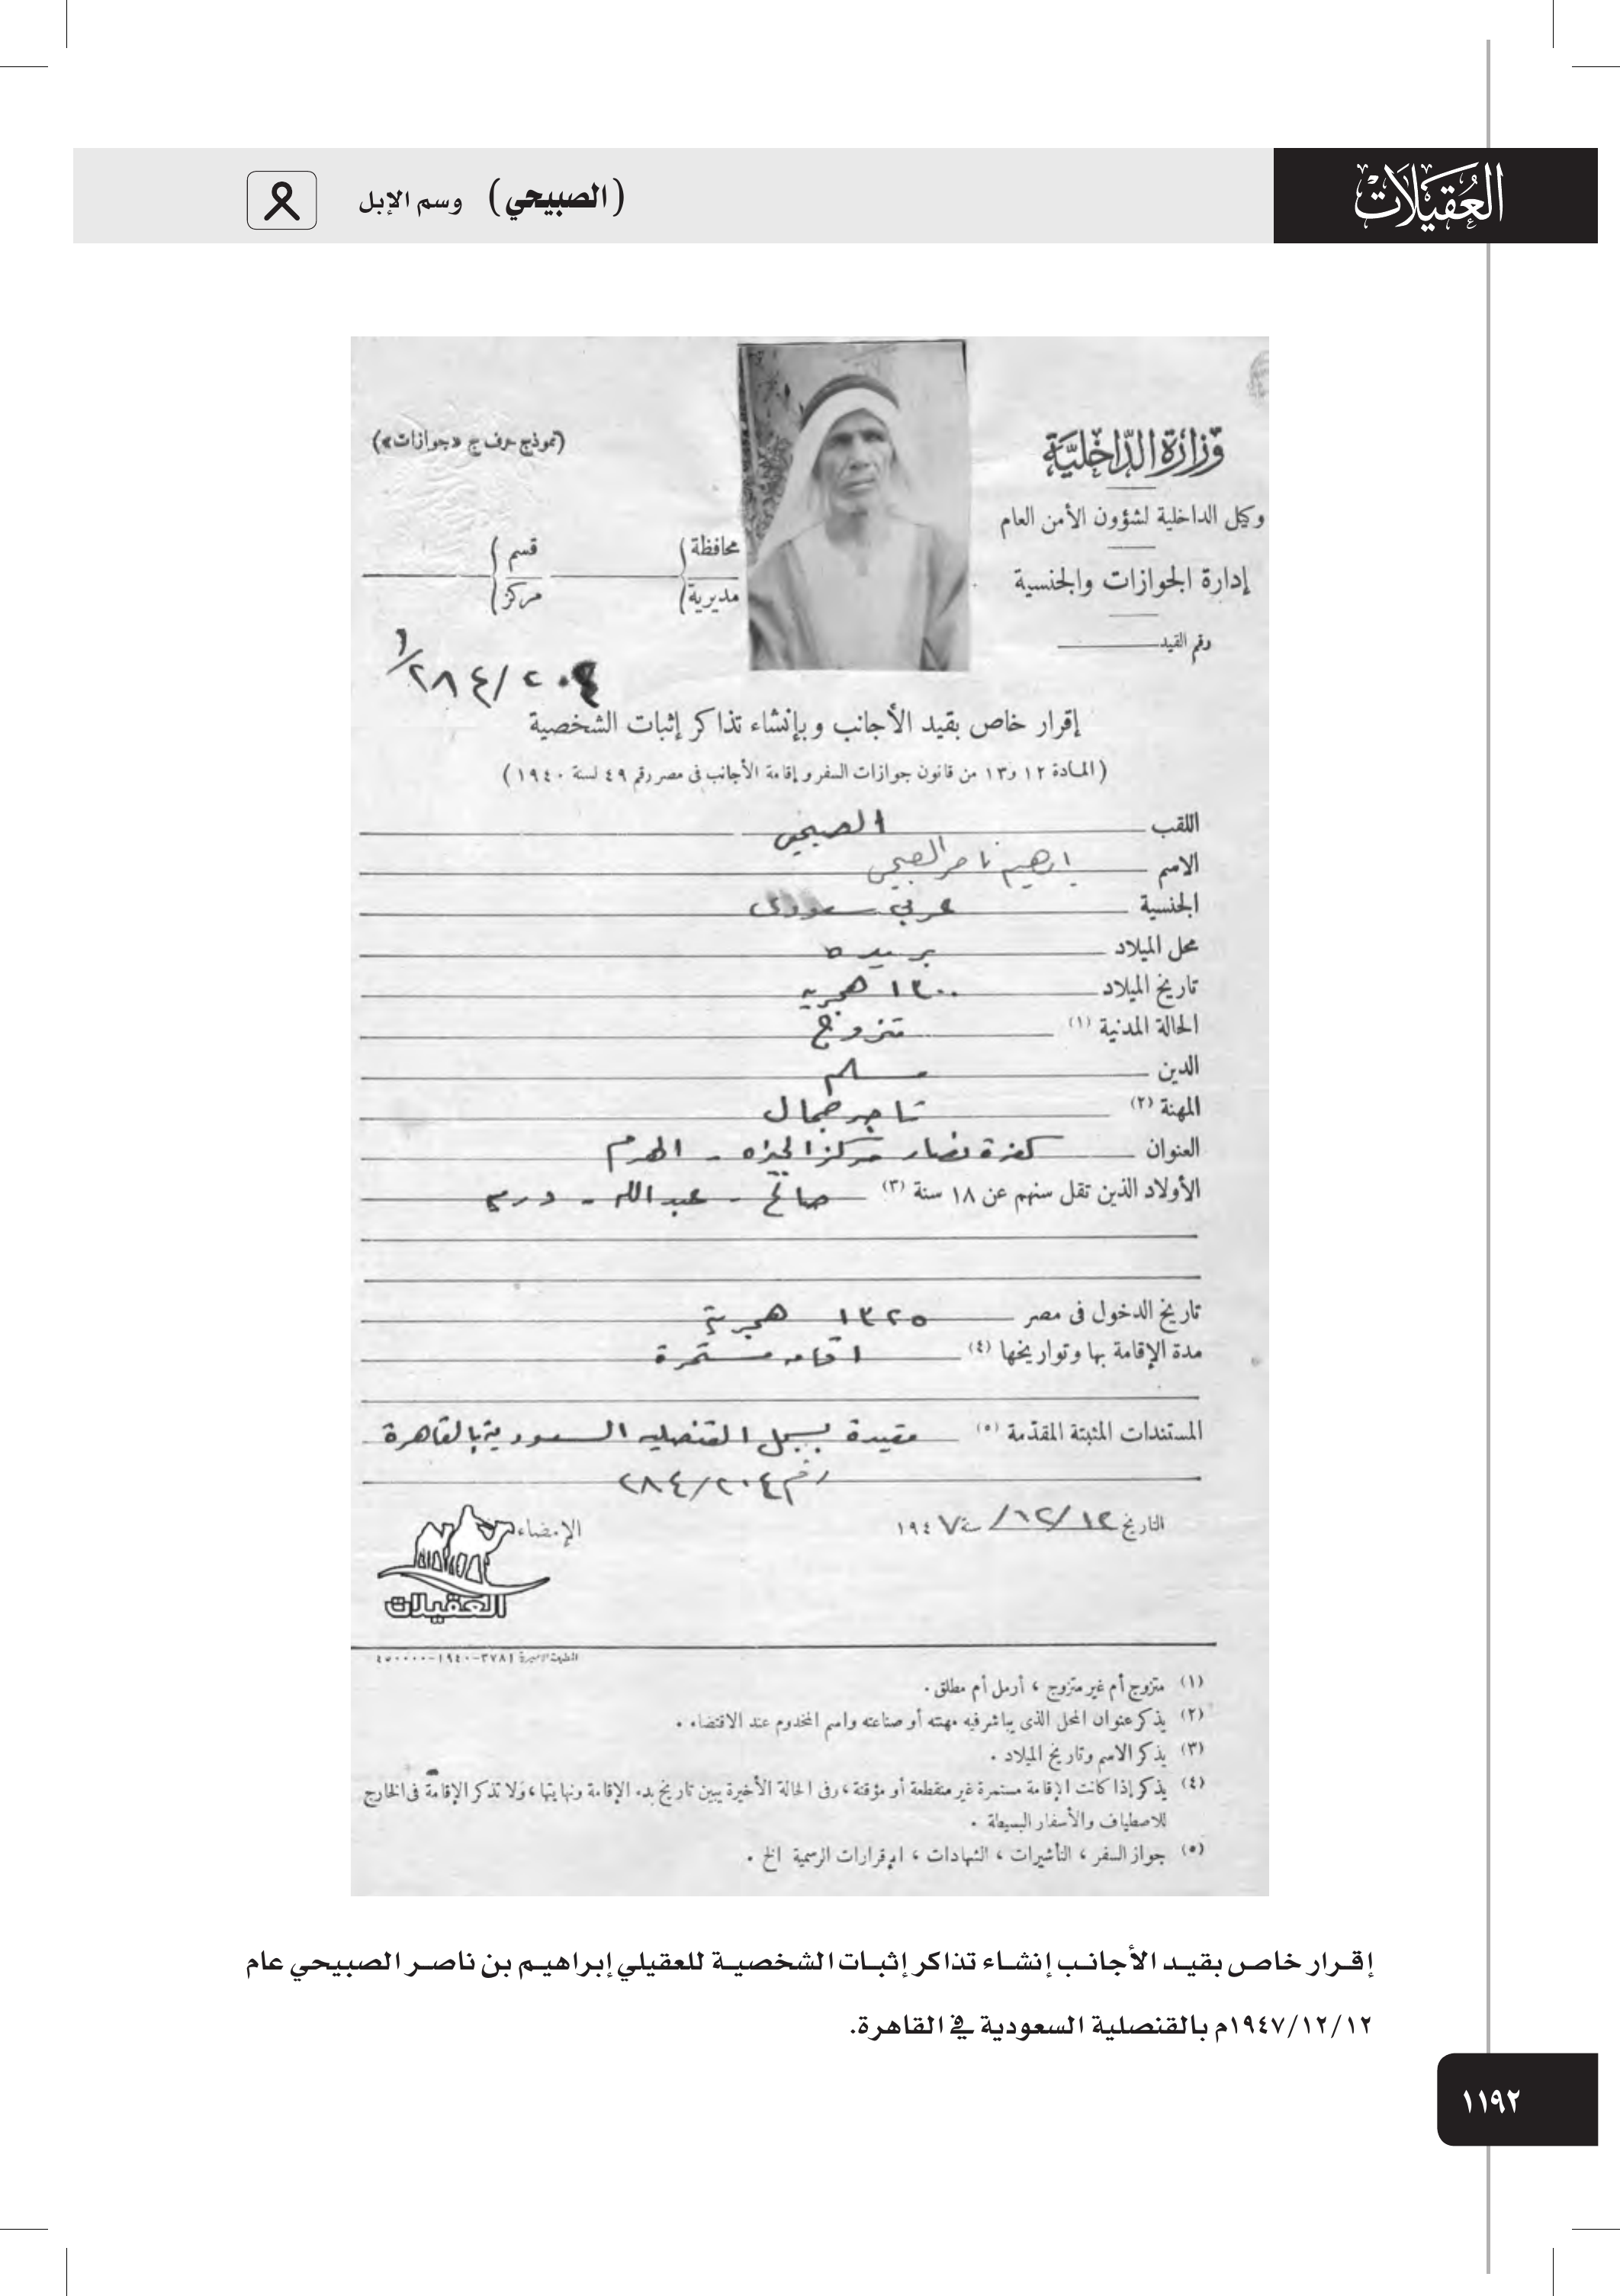 العقيلات
(الصبيحي) وسم الإبل
وزارة الداخلية
وكيل الداخلية لشؤون الأمن العام
إدارة الجوازات والجنسية
رقم القيد
(نموذج حرف ج «جوازات»)
محافظة قسم
مديرية مركز
٢٨٤/٢٠٤
إقرار خاص بقيد الأجانب وبإنشاء تذاكر إثبات الشخصية
(المادة ١٢ و١٣ من قانون جوازات السفر وإقامة الأجانب فى مصر رقم ٤٩ لسنة ١٩٤٠)
اللقب الصبيحي
الاسم ابرهيم ناصر الصبيحي
الجنسية عربي سعودى
محل الميلاد بريده
تاريخ الميلاد ١٣٠٠ هجريه
الحالة المدنية (١) متزوج
الدين مسلم
المهنة (٢) تاجر جمال
العنوان كفرة نصار مركز الجيزه - الهرم
الأولاد الذين تقل سنهم عن ١٨ سنة (٣) صالح - عبدالله -
تاريخ الدخول فى مصر ١٣٢٥ هجرية
مدة الإقامة بها وتواريخها (٤) اقامه مستمرة
المستندات المثبتة المقدّمة (٥) مقيدة بسجل القنصليه السعودية بالقاهرة
رقم ٢٨٤/٢٠٤
التاريخ ١٢/١٢/ سنة ١٩٤٧
الإمضاء
العقيلات
المطبعة الاميرية ٣٧٨١-١٩٤٠-
(١) متزوج أم غير متزوج ، أرمل أم مطلق .
(٢) يذكر عنوان المحل الذى يباشر فيه مهنته أو صناعته واسم المخدوم عند الاقتضاء .
(٣) يذكر الاسم وتاريخ الميلاد .
(٤) يذكر إذا كانت الإقامة مستمرة غير متقطعة أو مؤقتة ، وفى الحالة الأخيرة يبين تاريخ بدء الإقامة ونهايتها ، ولا تذكر الإقامة فى الخارج
للاصطياف والأسفار البسيطة .
(٥) جواز السفر ، التأشيرات ، الشهادات ، الإقرارات الرسمية الخ .
إقرار خاص بقيد الأجانب إنشاء تذاكر إثبات الشخصية للعقيلي إبراهيم بن ناصر الصبيحي عام
١٩٤٧/١٢/١٢م بالقنصلية السعودية في القاهرة.
١١٩٢